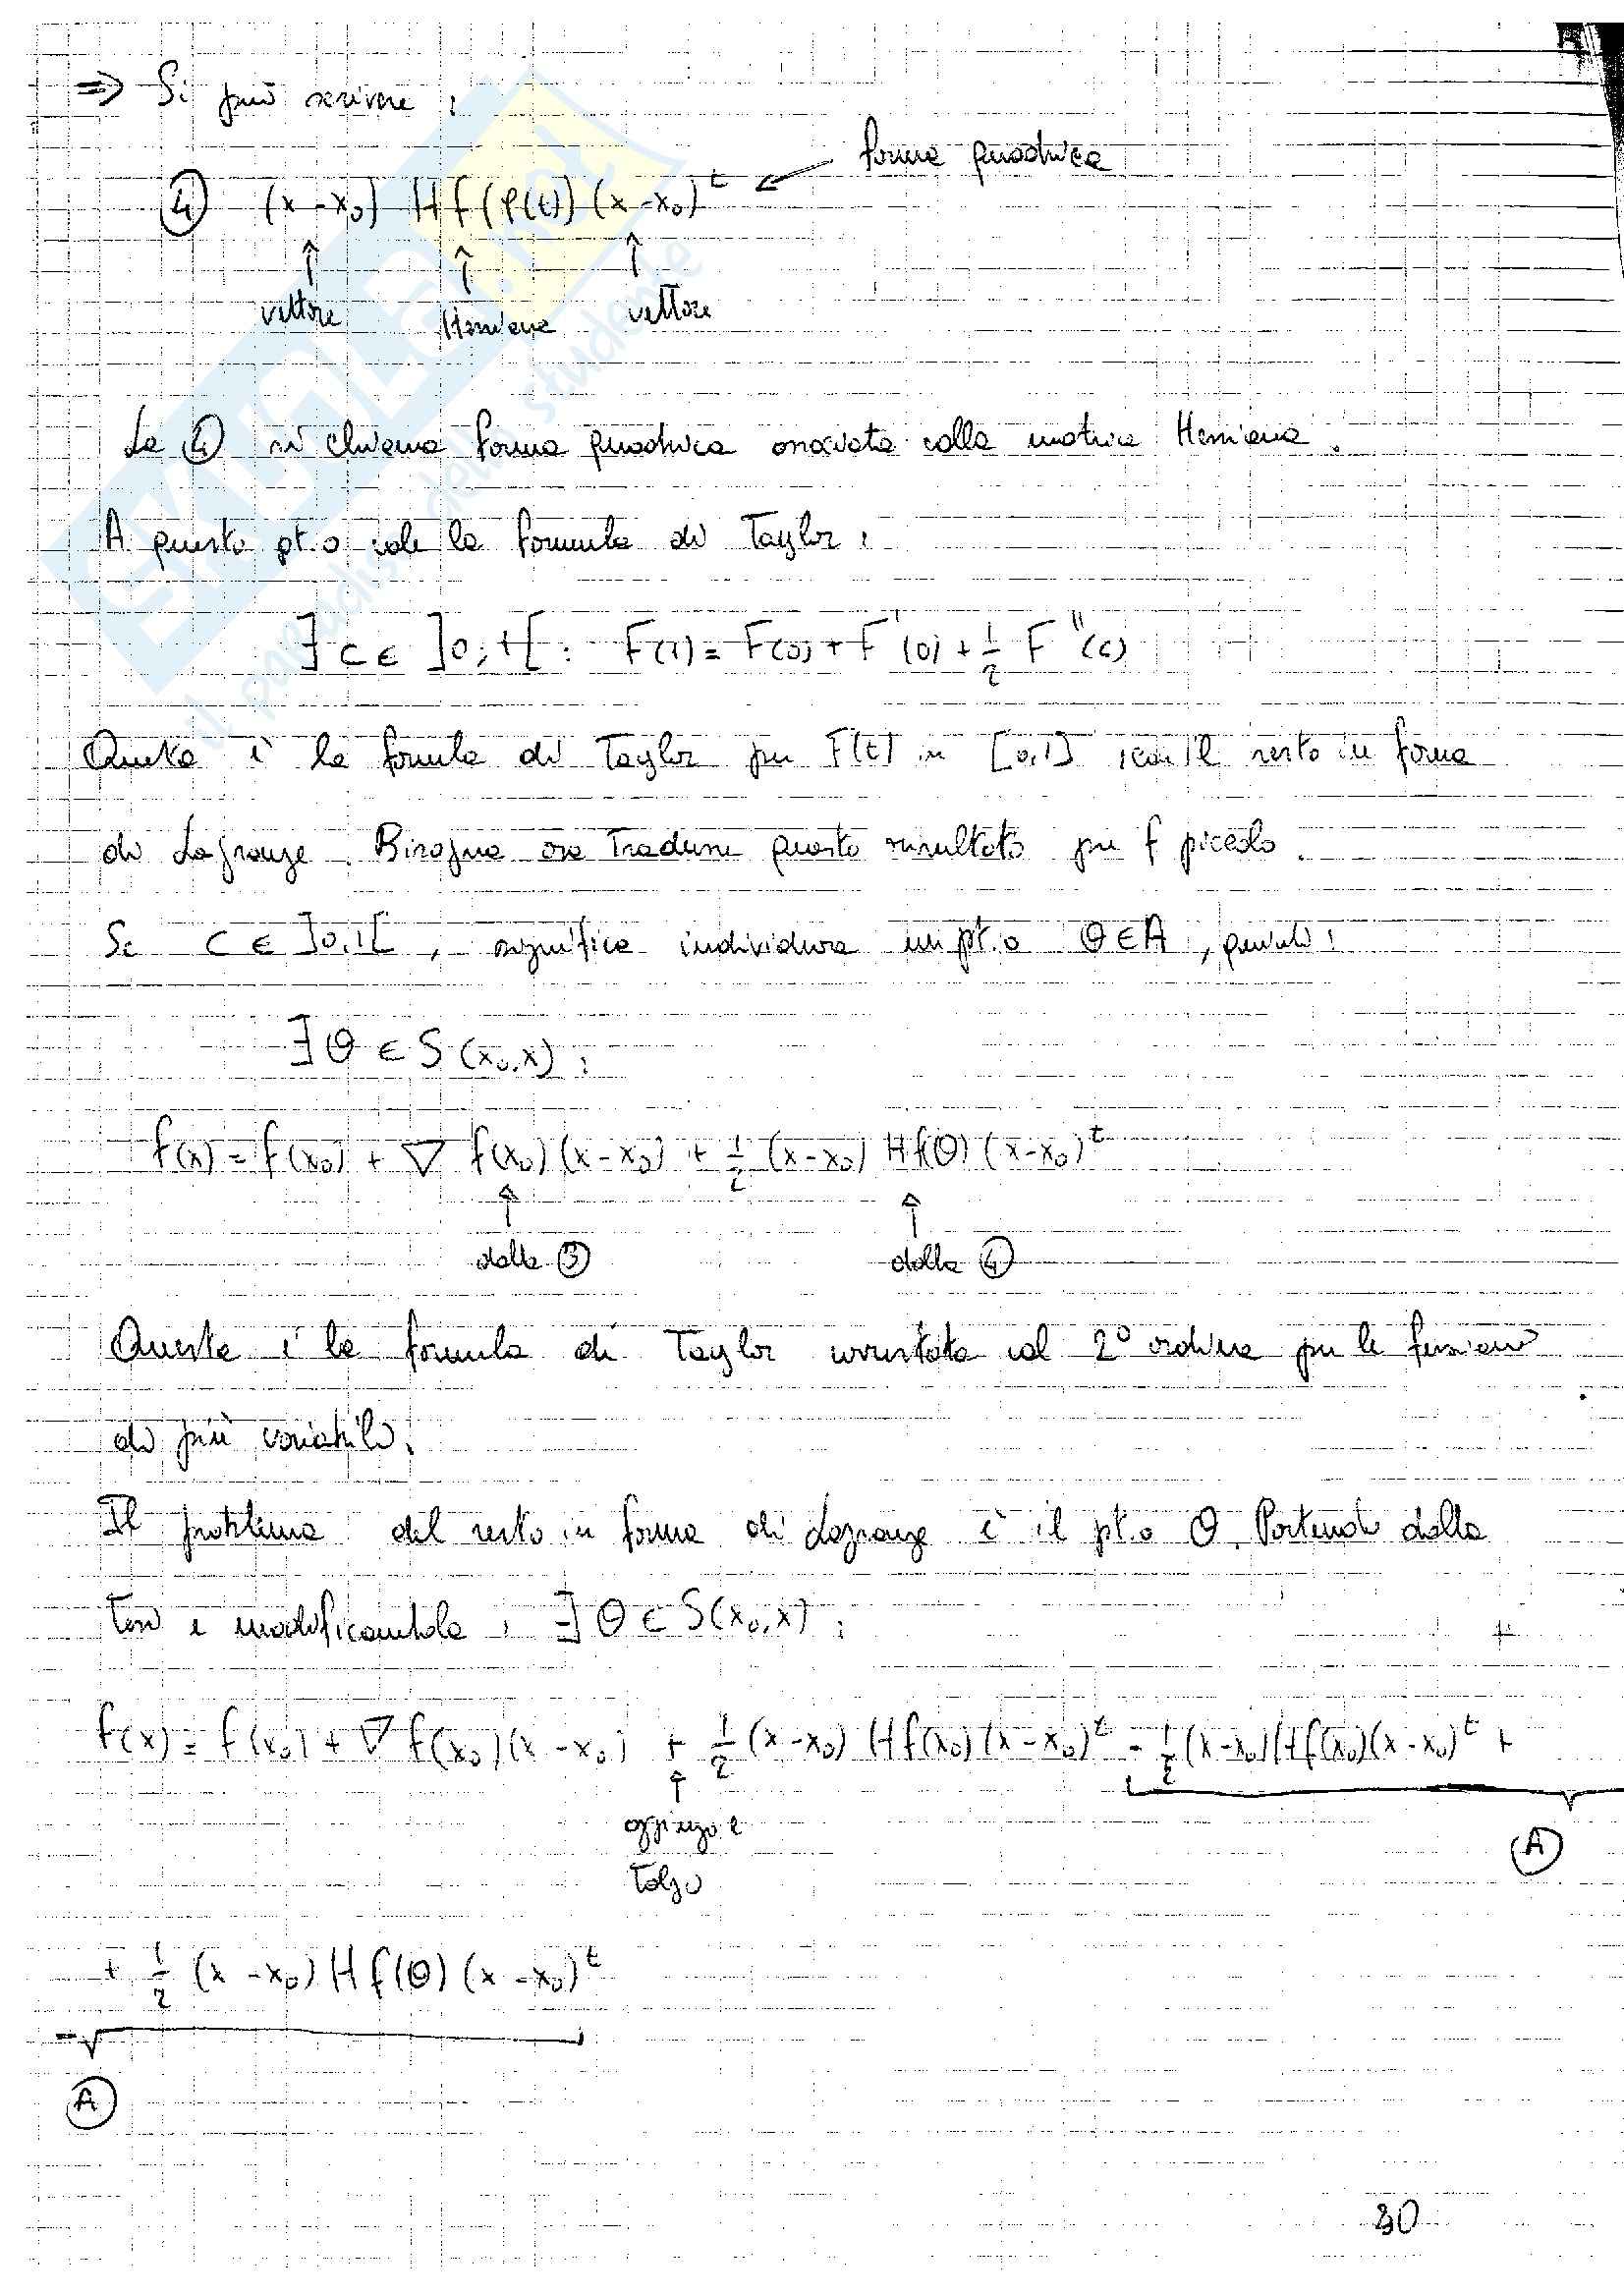 ⇒ Si può scrivere :
forma quadrica
④ (x - x₀) Hf(φ(t)) (x - x₀)ᵗ ←
↑ ↑ ↑
vettore Hessiana vettore
La ④ si chiama forma quadrica associata alla matrice Hessiana.
A questo pt.o vale la formula di Taylor :
∃ c ∈ ]0,1[ : F(1) = F(0) + F'(0) + 1/2 F''(c)
Questa è la formula di Taylor per F(t) in [0,1] , con il resto in forma
di Lagrange. Bisogna ora tradurre questo risultato per f piccolo.
Se c ∈ ]0,1[ , significa individuare un pt.o Θ ∈ A , quindi :
∃ Θ ∈ S(x₀,x) :
f(x) = f(x₀) + ∇ f(x₀)(x - x₀) + 1/2 (x - x₀) Hf(Θ) (x - x₀)ᵗ
↑ ↑
dalla ③ dalla ④
Questa è la formula di Taylor arrestata al 2° ordine per le funzioni
di più variabili.
Il problema del resto in forma di Lagrange è il pt.o Θ. Partendo dalla
Tesi e modificandola , ∃ Θ ∈ S(x₀,x) :
f(x) = f(x₀) + ∇ f(x₀)(x - x₀) + 1/2 (x - x₀) Hf(x₀) (x - x₀)ᵗ - 1/2 (x - x₀) Hf(x₀)(x - x₀)ᵗ +
↑
aggiungo e
Tolgo
Ⓐ
+ 1/2 (x - x₀) Hf(Θ) (x - x₀)ᵗ
Ⓐ
30